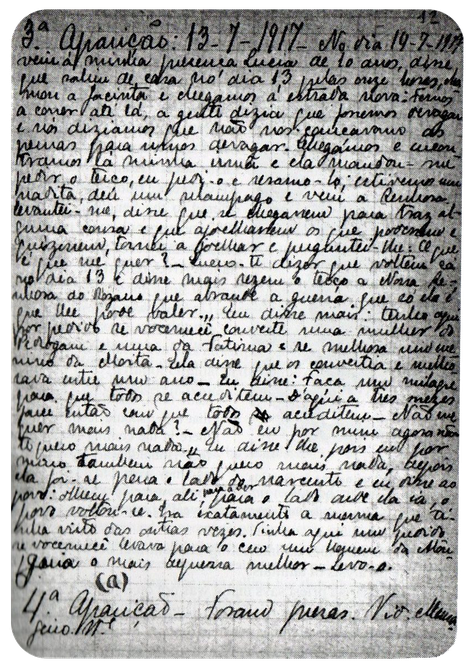 12
3.ª Aparição: 13-7-1917 - No dia 14-7-1917
veiu á minha presença Lucia de 10 anos, disse
que sahiu de casa no dia 13 pelas onze horas, cha
mou a Jacinta e chegamos á estrada nova. Fomos
a correr até lá, a gente dizia que fossemos devagar
e nós diziamos que não nos cançavamos as
pernas para irmos devagar. Chegamos e encon
tramos lá minha irmã e ela mandou-me
pedir o terço, eu pedi-o e resamo-lo; estivemos um
nadita, deu um relampago e veiu a Senhora,
levantei-me, disse que se chegassem para traz al-
guma cousa e que ajoelhassem os que podessem e
quizessem, tornei a joelhar e perguntei-lhe: O que
é que me quer? - Quero-ti dizer que voltem cá
no dia 13 e disse mais rezem o terço a Nossa Se-
nhora do Rozario que abrande a guerra que só ela é
que lhe pode valer.,, Eu disse mais: tenho aqui
um pedido se vocemecê converte uma mulher do
Pedrogam e uma da Fatima e se melhora um me
nino da Moita. Ela disse que os convertia e melho
rava entre um ano - Eu disse: Faça um milagre
para que todos se acreditem - D'aqui a tres mezes
farei então com que todos acreditem - Não me
quer mais nada? - Não eu por mim agora não
te quero mais nada,, Eu disse-lhe pois eu por
mim tambem não quero mais nada, depois
ela foi-se para o lado do nascente e eu disse ao
povo: olhem para ali para o lado onde ela ia, o
povo voltou-se. Era exatamente a mesma que ti
nha visto das outras vezes. Tinha aqui um pedido
se vocemecê levava para o ceu um homem da
o mais depressa melhor - Levo-o.
(a)
4.ª Aparição - Foram prezas. Vid.